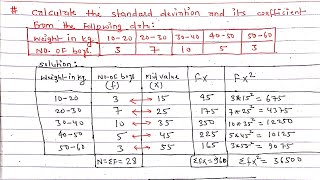 # Calculate the standard deviation and its coefficient
from the following data:
Weight in kg 10-20 20-30 30-40 40-50 50-60
No. of boys 3 7 10 5 3
Solution:
Weight in kg No. of boys (f) Mid value (X) fx fx²
10-20 3 15 45 3*15² = 675
20-30 7 25 175 7*25² = 4375
30-40 10 35 350 10*35² = 12250
40-50 5 45 225 5*45² = 10125
50-60 3 55 165 3*55² = 9075
N=Σf= 28 Σfx = 960 Σfx² = 36500